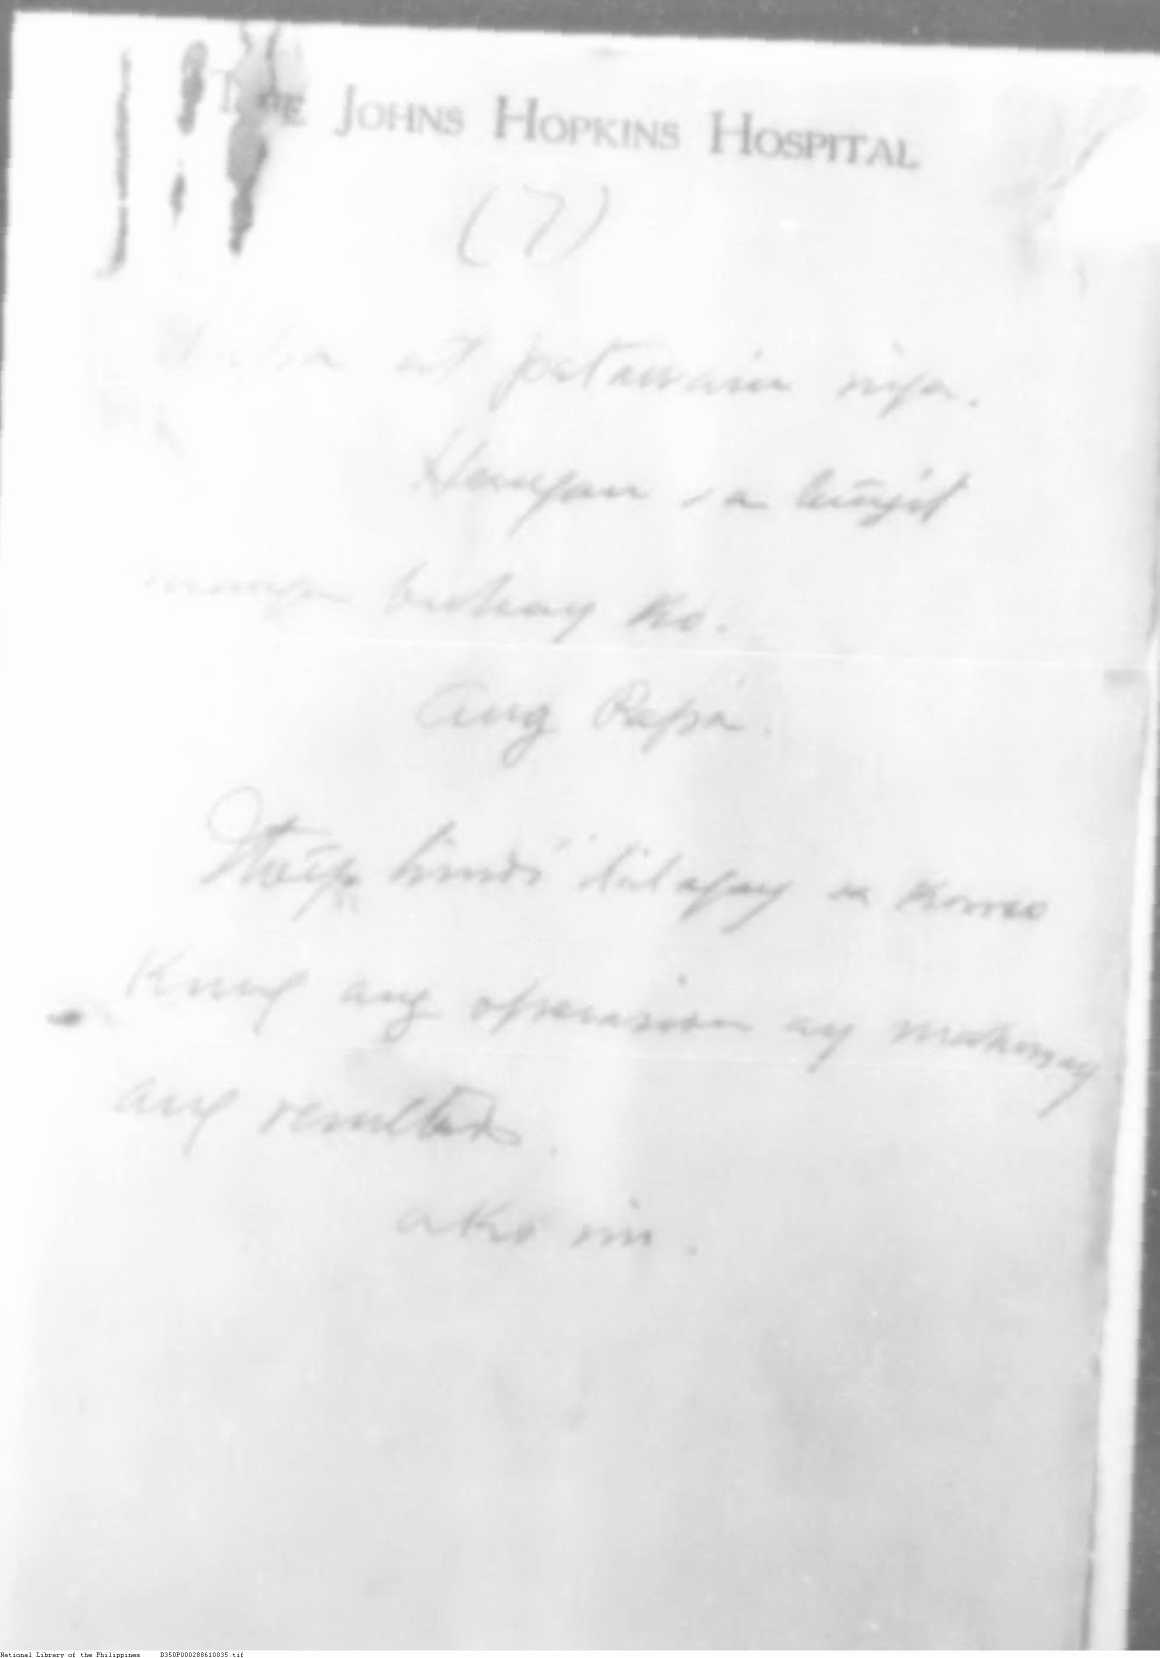 THE JOHNS HOPKINS HOSPITAL
(7)
at patawain niya.
sa lañgit
buhay ko.
Ang Papá.
hindi ilalagay sa koreo
Kung ang operasion ay
ang resultado.
ako rin.
National Library of the Philippines D350P000288610035.tif